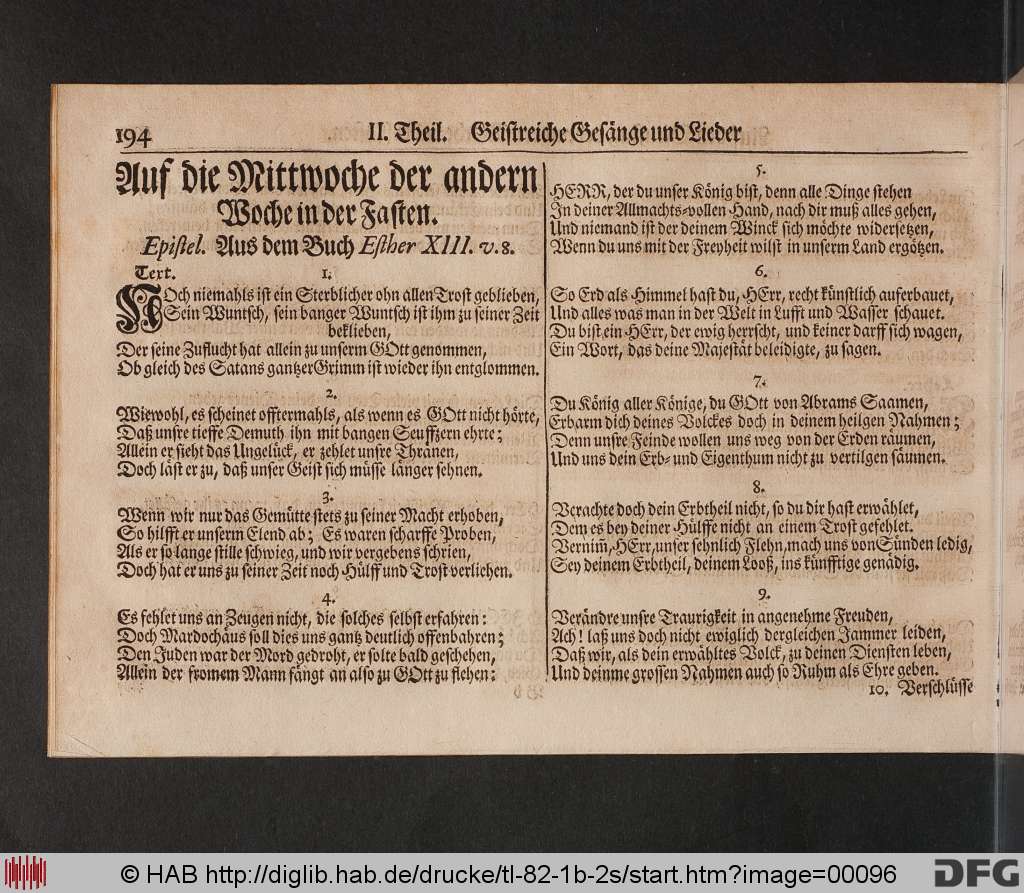 194
II. Theil. Geistreiche Gesänge und Lieder
Auf die Mittwoche der andern
Woche in der Fasten.
Epistel. Aus dem Buch Esther XIII. v. 8.
Text.
1.
NOch niemahls ist ein Sterblicher ohn allen Trost geblieben,
Sein Wuntsch, sein banger Wuntsch ist ihm zu seiner Zeit
beklieben,
Der seine Zuflucht hat allein zu unserm GOtt genommen,
Ob gleich des Satans gantzer Grimm ist wieder ihn entglommen.
2.
Wiewohl, es scheinet offtermahls, als wenn es GOtt nicht hörte,
Daß unsre tieffe Demuth ihn mit bangen Seuffzern ehrte;
Allein er sieht das Ungelück, er zehlet unsre Thränen,
Doch läst er zu, daß unser Geist sich müsse länger sehnen.
3.
Wenn wir nur das Gemütte stets zu seiner Macht erhoben,
So hilfft er unserm Elend ab; Es waren scharffe Proben,
Als er so lange stille schwieg, und wir vergebens schrien,
Doch hat er uns zu seiner Zeit noch Hülff und Trost verliehen.
4.
Es fehlet uns an Zeugen nicht, die solches selbst erfahren:
Doch Mardochäus soll dies uns gantz deutlich offenbahren;
Den Juden war der Mord gedroht, er solte bald geschehen,
Allein der fromem Mann fängt an also zu GOtt zu flehen:
5.
HERR, der du unser König bist, denn alle Dinge stehen
In deiner Allmachts-vollen Hand, nach dir muß alles gehen,
Und niemand ist der deinem Winck sich möchte widersetzen,
Wenn du uns mit der Freyheit wilst in unserm Land ergötzen.
6.
So Erd als Himmel hast du, HErr, recht künstlich auferbauet,
Und alles was man in der Welt in Lufft und Wasser schauet.
Du bist ein HErr, der ewig herrscht, und keiner darff sich wagen,
Ein Wort, das deine Majestät beleidigte, zu sagen.
7.
Du König aller Könige, du GOtt von Abrams Saamen,
Erbarm dich deines Volckes doch in deinem heilgen Nahmen;
Denn unsre Feinde wollen uns weg von der Erden räumen,
Und uns dein Erb- und Eigenthum nicht zu vertilgen säumen.
8.
Verachte doch dein Erbtheil nicht, so du dir hast erwählet,
Dem es bey deiner Hülffe nicht an einem Trost gefehlet.
Vernim̃, HErr, unser sehnlich Flehn, mach uns von Sünden ledig,
Sey deinem Erbtheil, deinem Looß, ins künfftige genädig.
9.
Verändre unsre Traurigkeit in angenehme Freuden,
Ach! laß uns doch nicht ewiglich dergleichen Jammer leiden,
Daß wir, als dein erwähltes Volck, zu deinen Diensten leben,
Und deinme grossen Nahmen auch so Ruhm als Ehre geben.
10. Verschlüsse
© HAB http://diglib.hab.de/drucke/tl-82-1b-2s/start.htm?image=00096
DFG